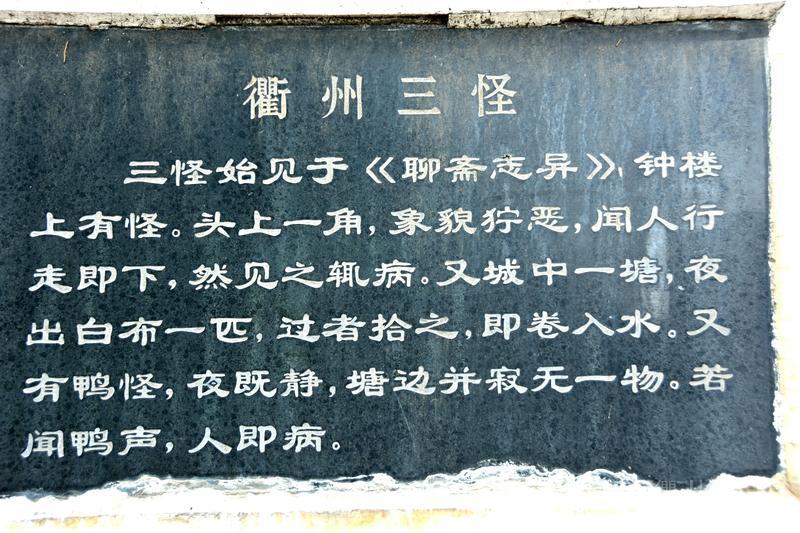 衢州三怪
三怪始见于《聊斋志异》，钟楼
上有怪。头上一角，象貌狞恶，闻人行
走即下，然见之辄病。又城中一塘，夜
出白布一匹，过者拾之，即卷入水。又
有鸭怪，夜既静，塘边并寂无一物。若
闻鸭声，人即病。